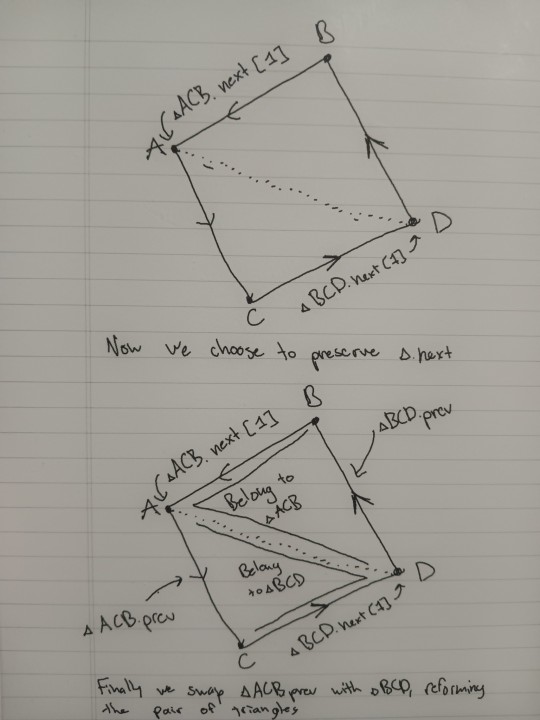 B
△ACB.next[1]
A
D
△BCD.next[1]
C
Now we choose to preserve △.next
B
△BCD.prev
△ACB.next[1]
A
Belong to
△ACB
Belong
to △BCD
D
△ACB.prev
△BCD.next[1]
C
Finally we swap △ACB prev with △BCD, reforming
the pair of triangles